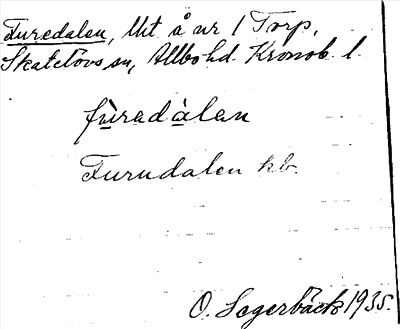 Furedalen, Utt å nr 1 Torp,
Skatelövs sn, Allbo hd. Kronob. l.
fùredàlen
Furudalen kb.
O. Segerbäck 1935.